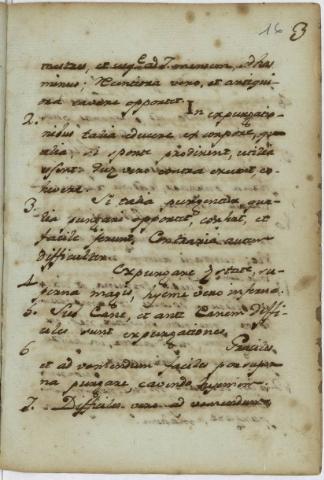 16 3
mestres, et usq. ad 7. mensem, ad haec
minus; Juniora vero, et antiquio
ra cavere oportet. In expurgatio
2. nibus talia educere ex corpore, qua
lia si sponte prodirent, utilia
essent: quae vero contra exeunt co
hibere.
3. Si talia purgentur, qua
lia purgari oportet, confert, et
facile ferunt, Contraria autem
difficulter.
4. Expurgare aestate, su
perna magis, hyeme vero inferna.
5. Sub Cane, et ante Canem diffi
ciles sunt expurgationes.
6 Graciles
et ad vomendum faciles per super
na purgare, cavendo hyemem.
7. Difficiles vero ad vomendum,